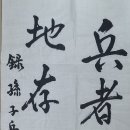 兵者
地存
録孫子兵